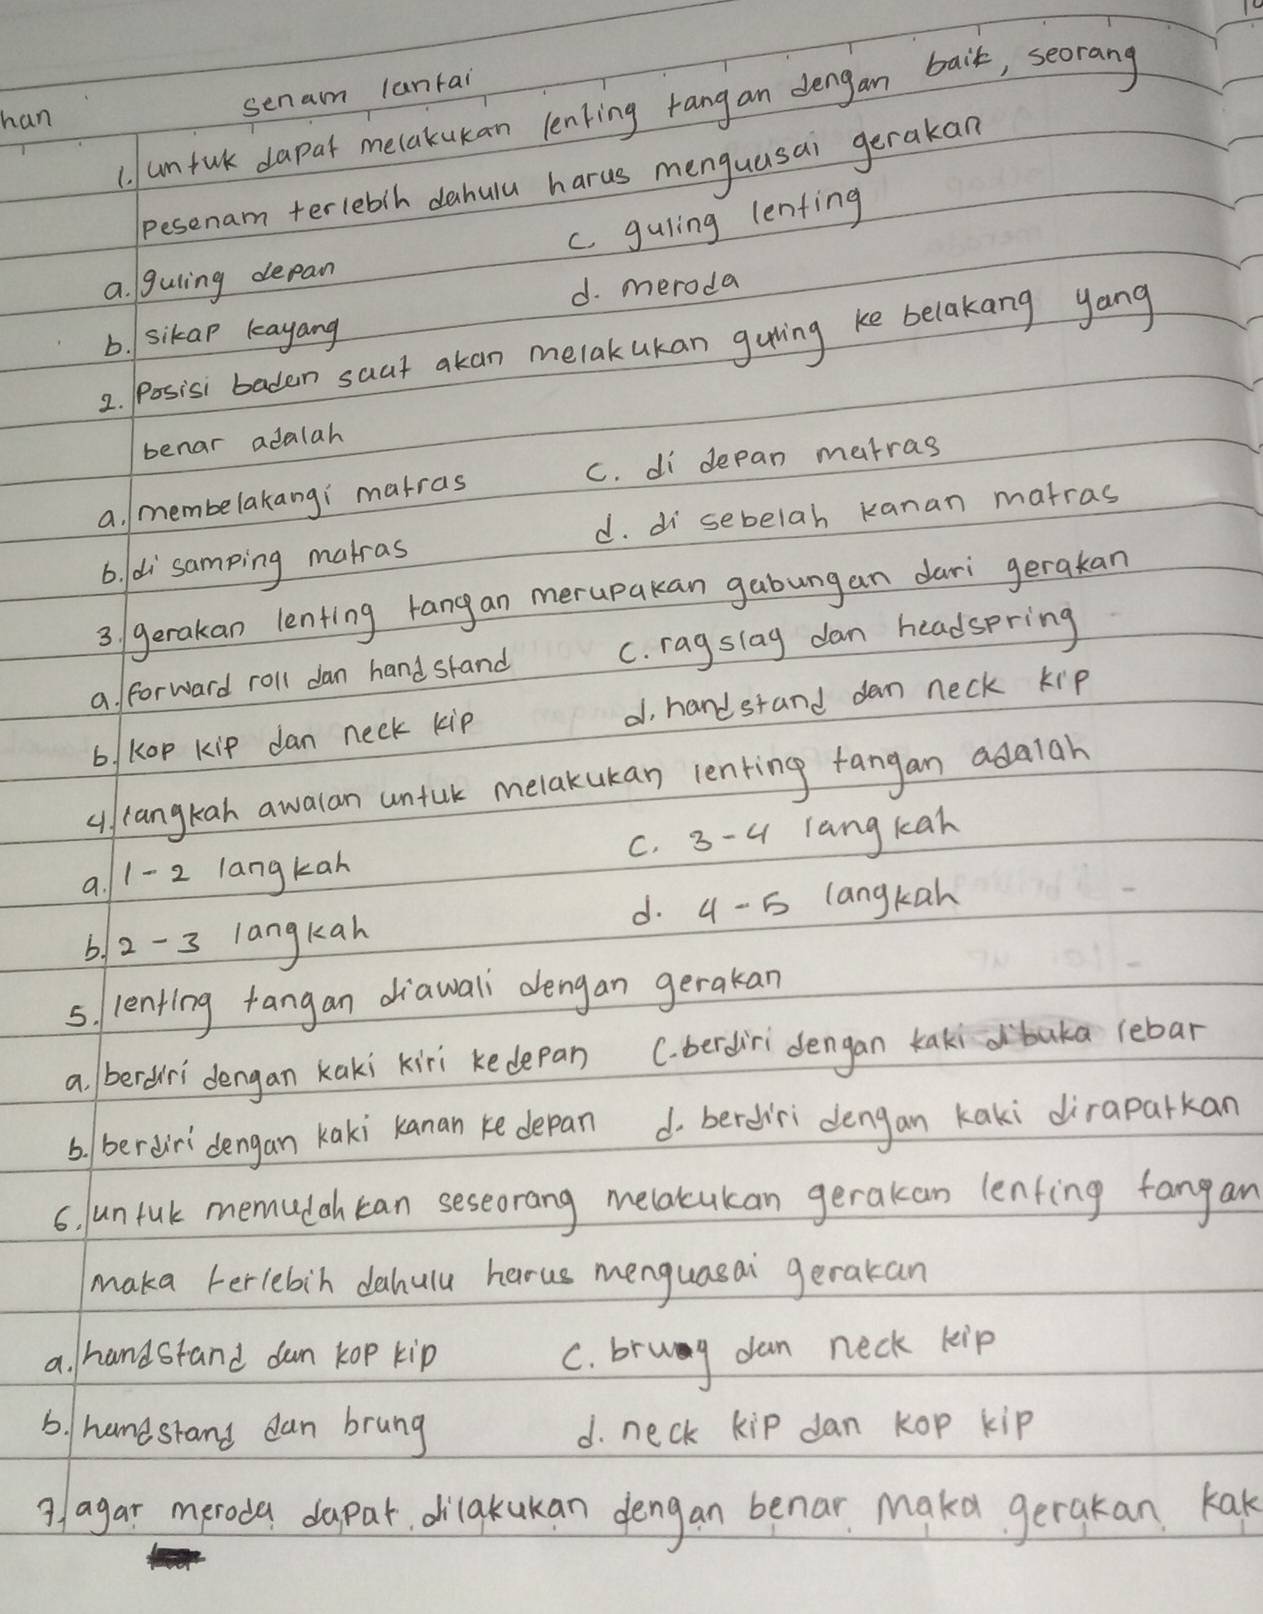 han
senam lantai
1. untuk dapat melakukan lenting tangan dengan baik, seorang
pesenam terlebih dahulu harus menguasai gerakan
a. guling depan c. guling lenting
b. sikap kayang d. meroda
2. Posisi badan saat akan melakukan guling ke belakang yang
benar adalah
a. membelakangi matras c. di depan matras
b. di samping matras d. di sebelah kanan matras
3. gerakan lenting tangan merupakan gabungan dari gerakan
a. forward roll dan handstand c. ragslag dan headspring
b. kop kip dan neck kip d. handstand dan neck kip
4. langkah awalan untuk melakukan lenting tangan adalah
a. 1-2 langkah c. 3-4 langkah
b. 2-3 langkah d. 4-5 langkah
5. lenting tangan diawali dengan gerakan
a. berdiri dengan kaki kiri kedepan c. berdiri dengan kaki dibuka lebar
b. berdiri dengan kaki kanan ke depan d. berdiri dengan kaki dirapatkan
6. untuk memudahkan seseorang melakukan gerakan lenting tangan
maka terlebih dahulu harus menguasai gerakan
a. handstand dan kop kip c. brung dan neck kip
b. handstand dan brung d. neck kip dan kop kip
7. agar meroda dapat dilakukan dengan benar maka gerakan kak